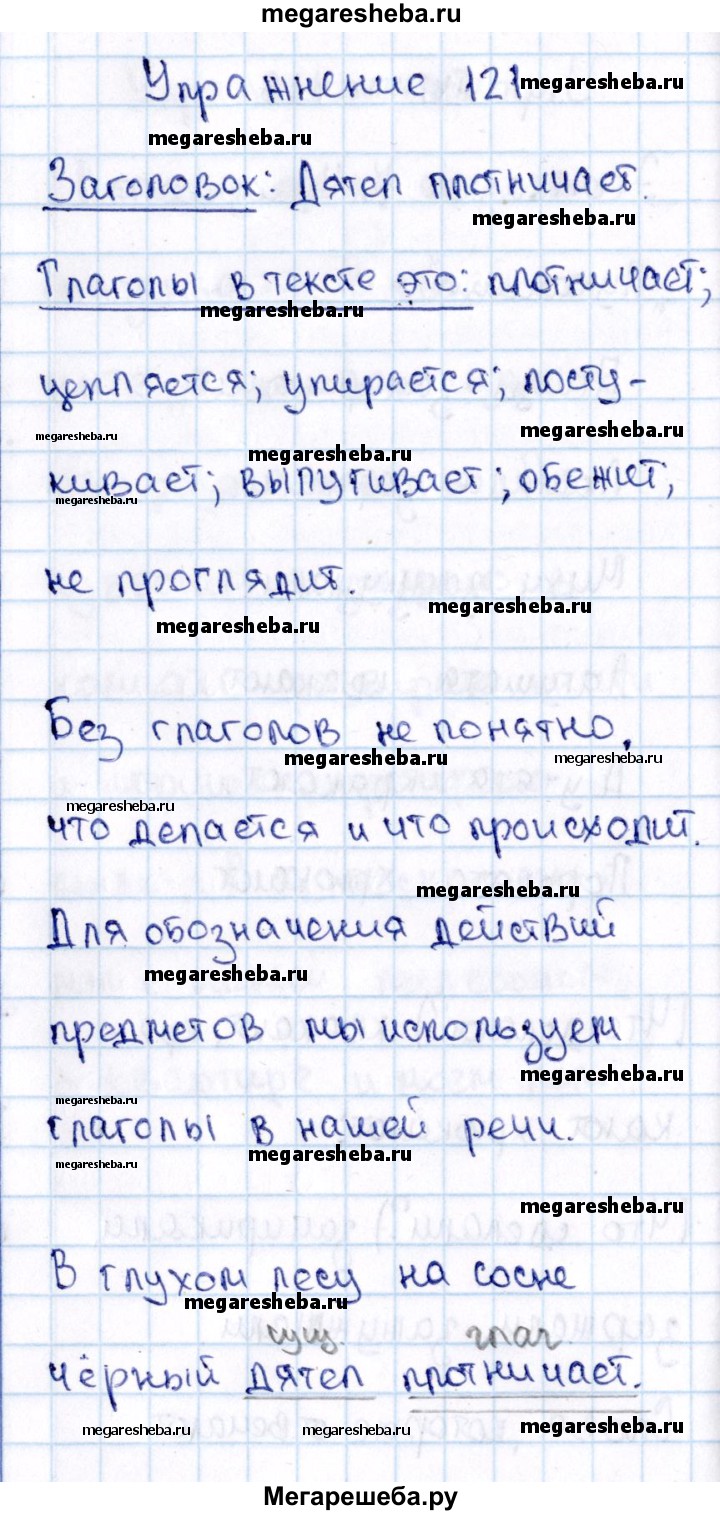 megaresheba.ru
Упражнение 121 megaresheba.ru
megaresheba.ru
Заголовок: Дятел плотничает.
megaresheba.ru
Глаголы в тексте это: плотничает;
megaresheba.ru
цепляется; упирается; посту-
megaresheba.ru
megaresheba.ru
megaresheba.ru
кивает; выпугивает; обежит,
megaresheba.ru
не проглядит.
megaresheba.ru
megaresheba.ru
Без глаголов не понятно,
megaresheba.ru
megaresheba.ru
megaresheba.ru
что делается и что происходит.
megaresheba.ru
Для обозначения действий
megaresheba.ru
предметов мы используем
megaresheba.ru
megaresheba.ru
глаголы в нашей речи.
megaresheba.ru
megaresheba.ru
megaresheba.ru
В глухом лесу на сосне
megaresheba.ru
сущ. глаг.
чёрный дятел плотничает.
megaresheba.ru
megaresheba.ru
megaresheba.ru
Мегарешеба.ру